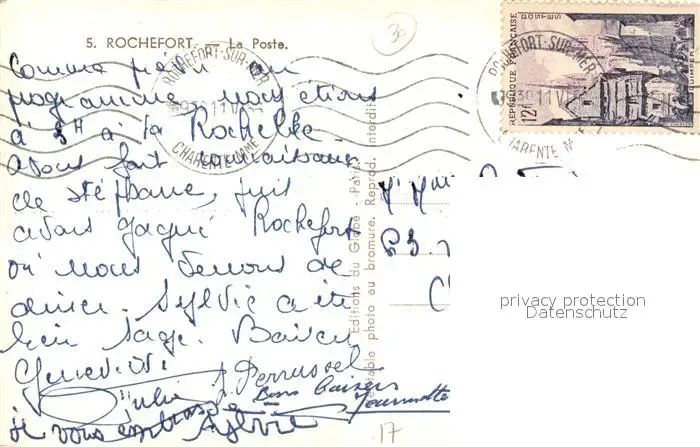 5. ROCHEFORT. - La Poste.
30
ROCHEFORT-SUR-MER
CHARENTE MME
REPUBLIQUE FRANÇAISE
POSTES
12f
QUIMPER
ROCHEFORT-SUR-MER
CHARENTE MME
Comme prévu au
programme nous étions
à 3H à la Rochelle
avons fait connaissance
de Stéphane, puis
avons gagné Rochefort
où nous venons de
diner. Sylvie a été
bien sage. Baisers
Geneviève
Perrussel
Bons baisers
je vous embrasse Sylvie
Editions du Globe - Paris
véritable photo au bromure. Reprod. interdite
63
17
privacy protection
Datenschutz